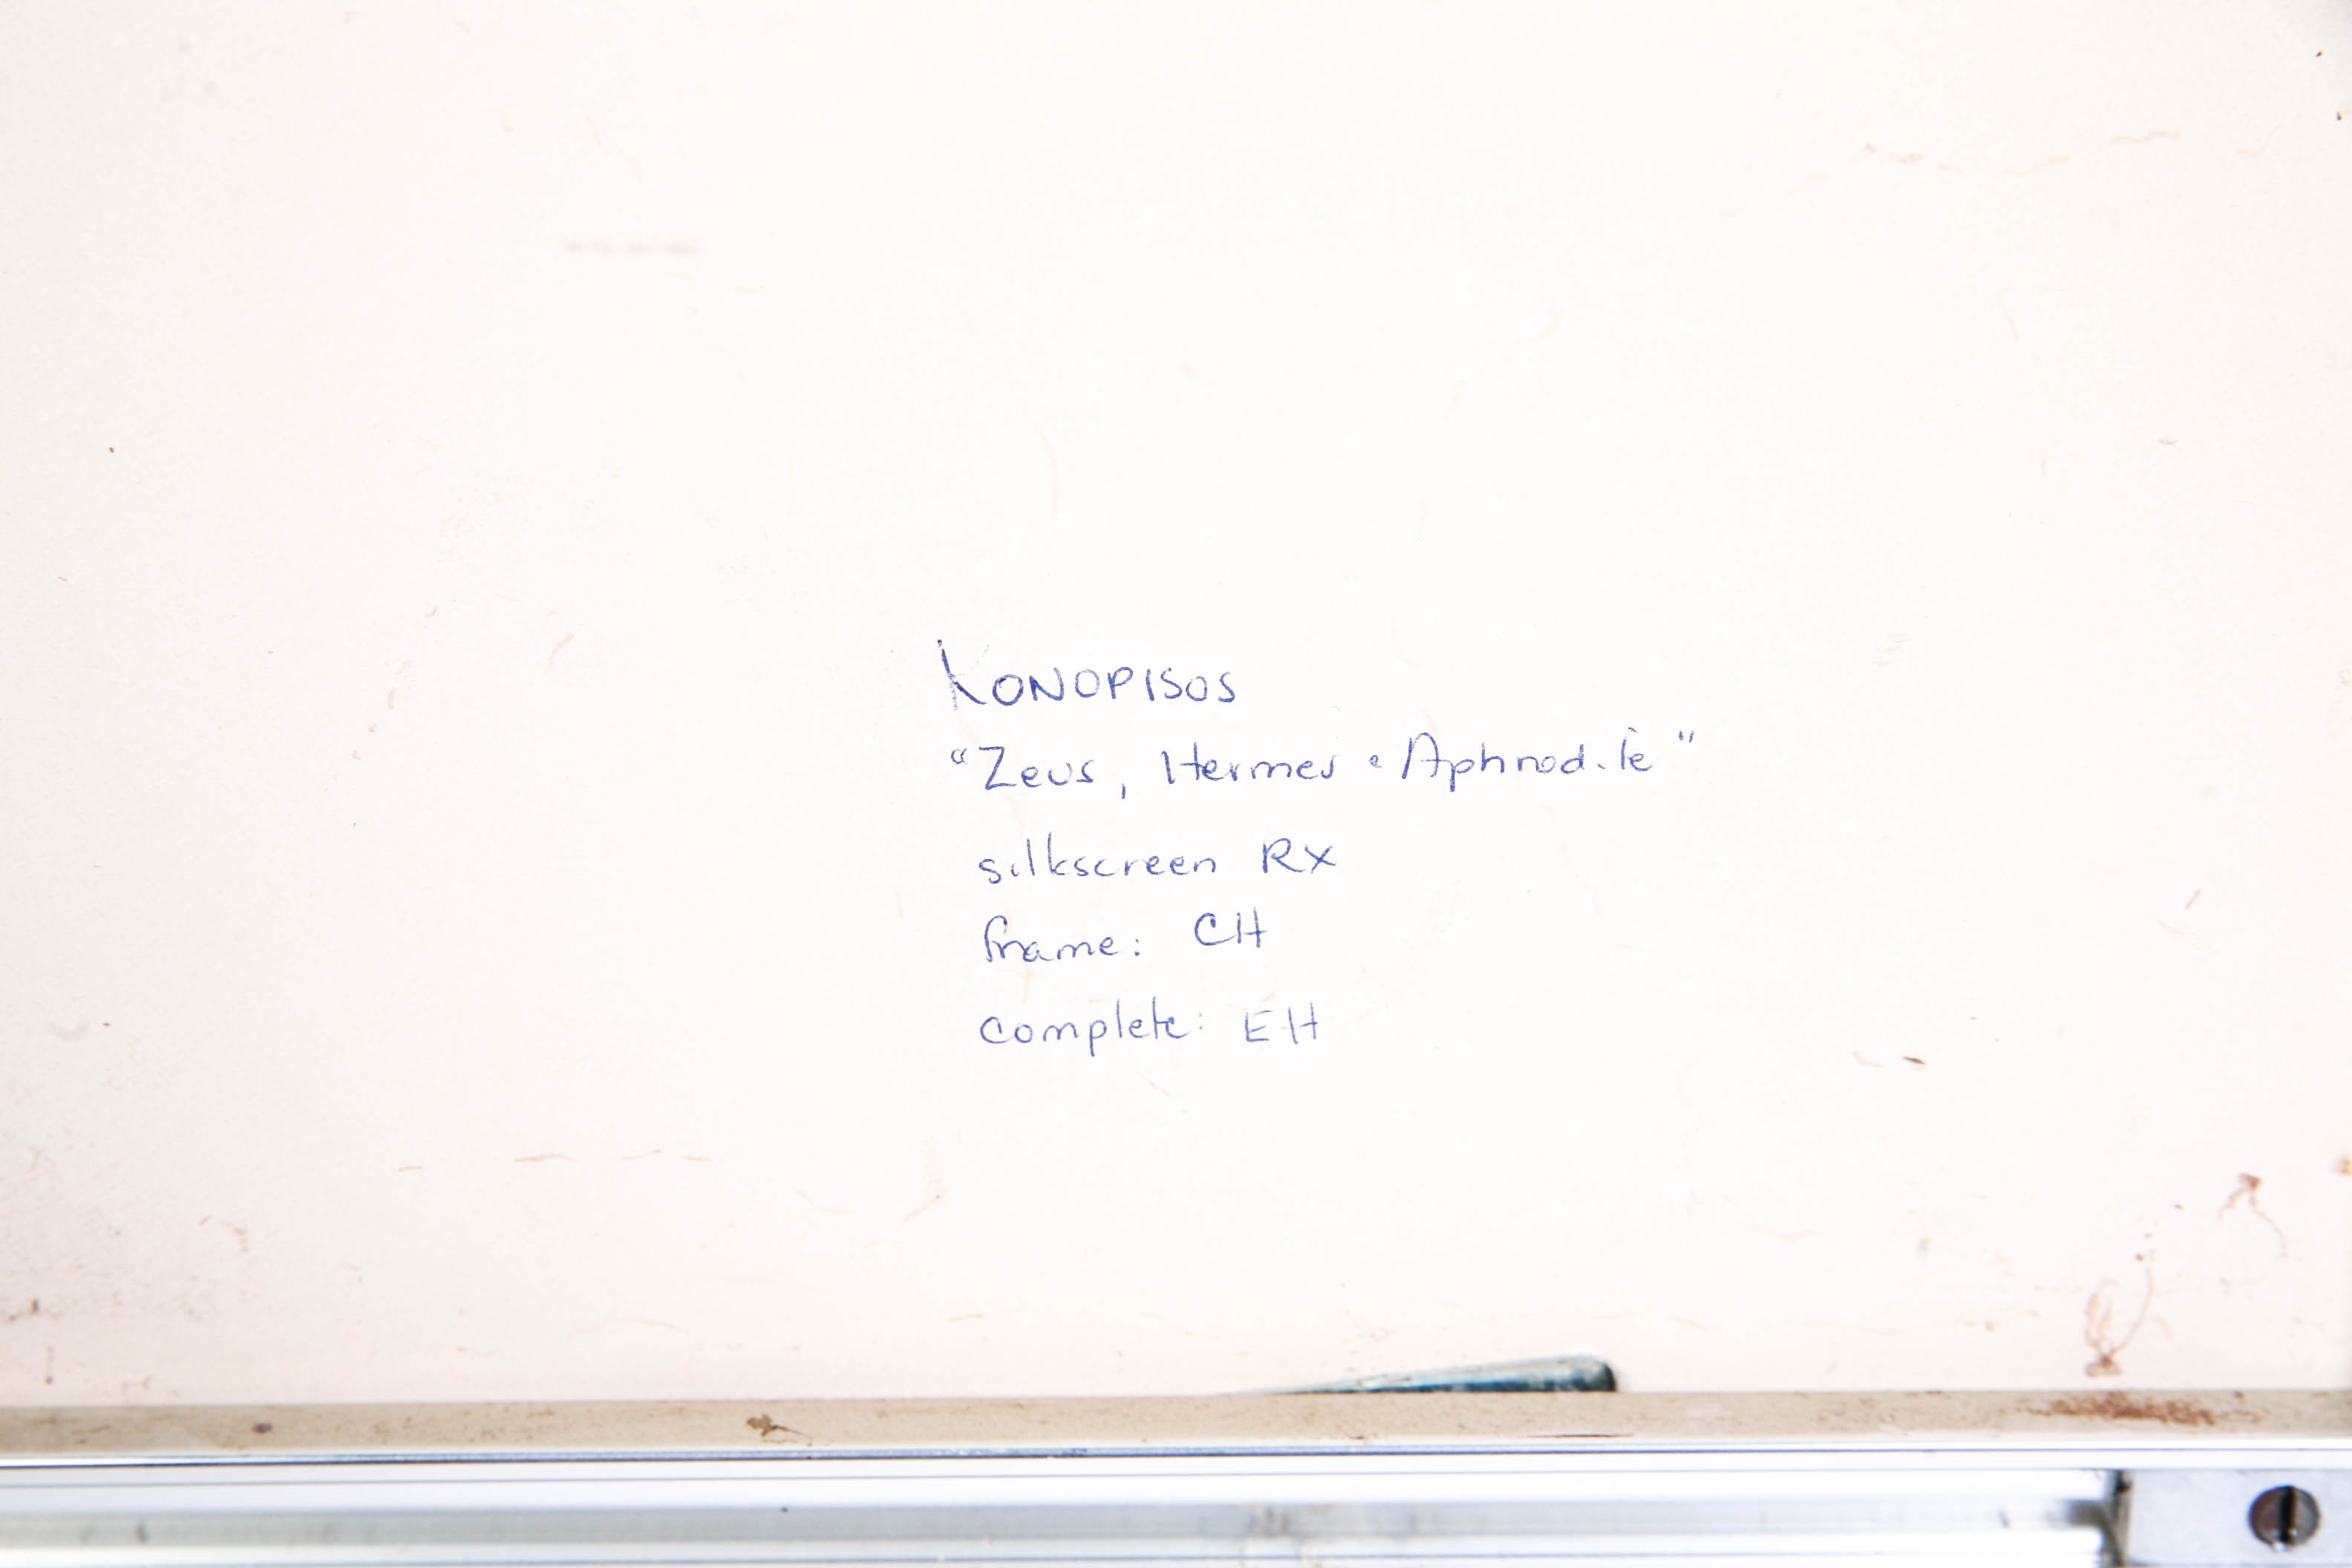 KONOPISOS
"Zeus, Hermes e Aphrodite"
silkscreen RX
frame: CH
complete: EH